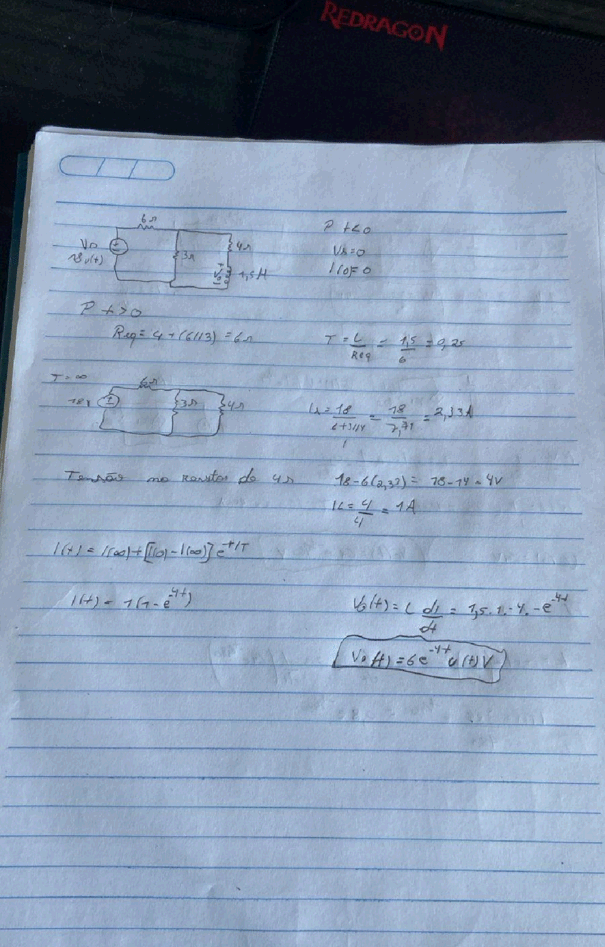 REDRAGON
6Ω
Vs
18u(t)
3Ω
4Ω
1,5H
P t<0
Vs=0
I(0)=0
P t>0
Req= 4+(6//3) = 6Ω
T = L/Req = 1,5/6 = 0,25
T=∞
6Ω
18V
3Ω
4Ω
= 18/6+3//4 = 18/7,71 = 2,33A
Tensão no resistor de 4Ω
18-6(2,33) = 18-14 = 4V
IL = 4/4 = 1A
I(t) = I(∞)+[I(0)-I(∞)] e^-t/T
I(t) = 1(1-e^-4t)
V0(t) = L dI/dt = 1,5.1.-4.-e^-4t
V0(t) = 6e^-4t u(t)V